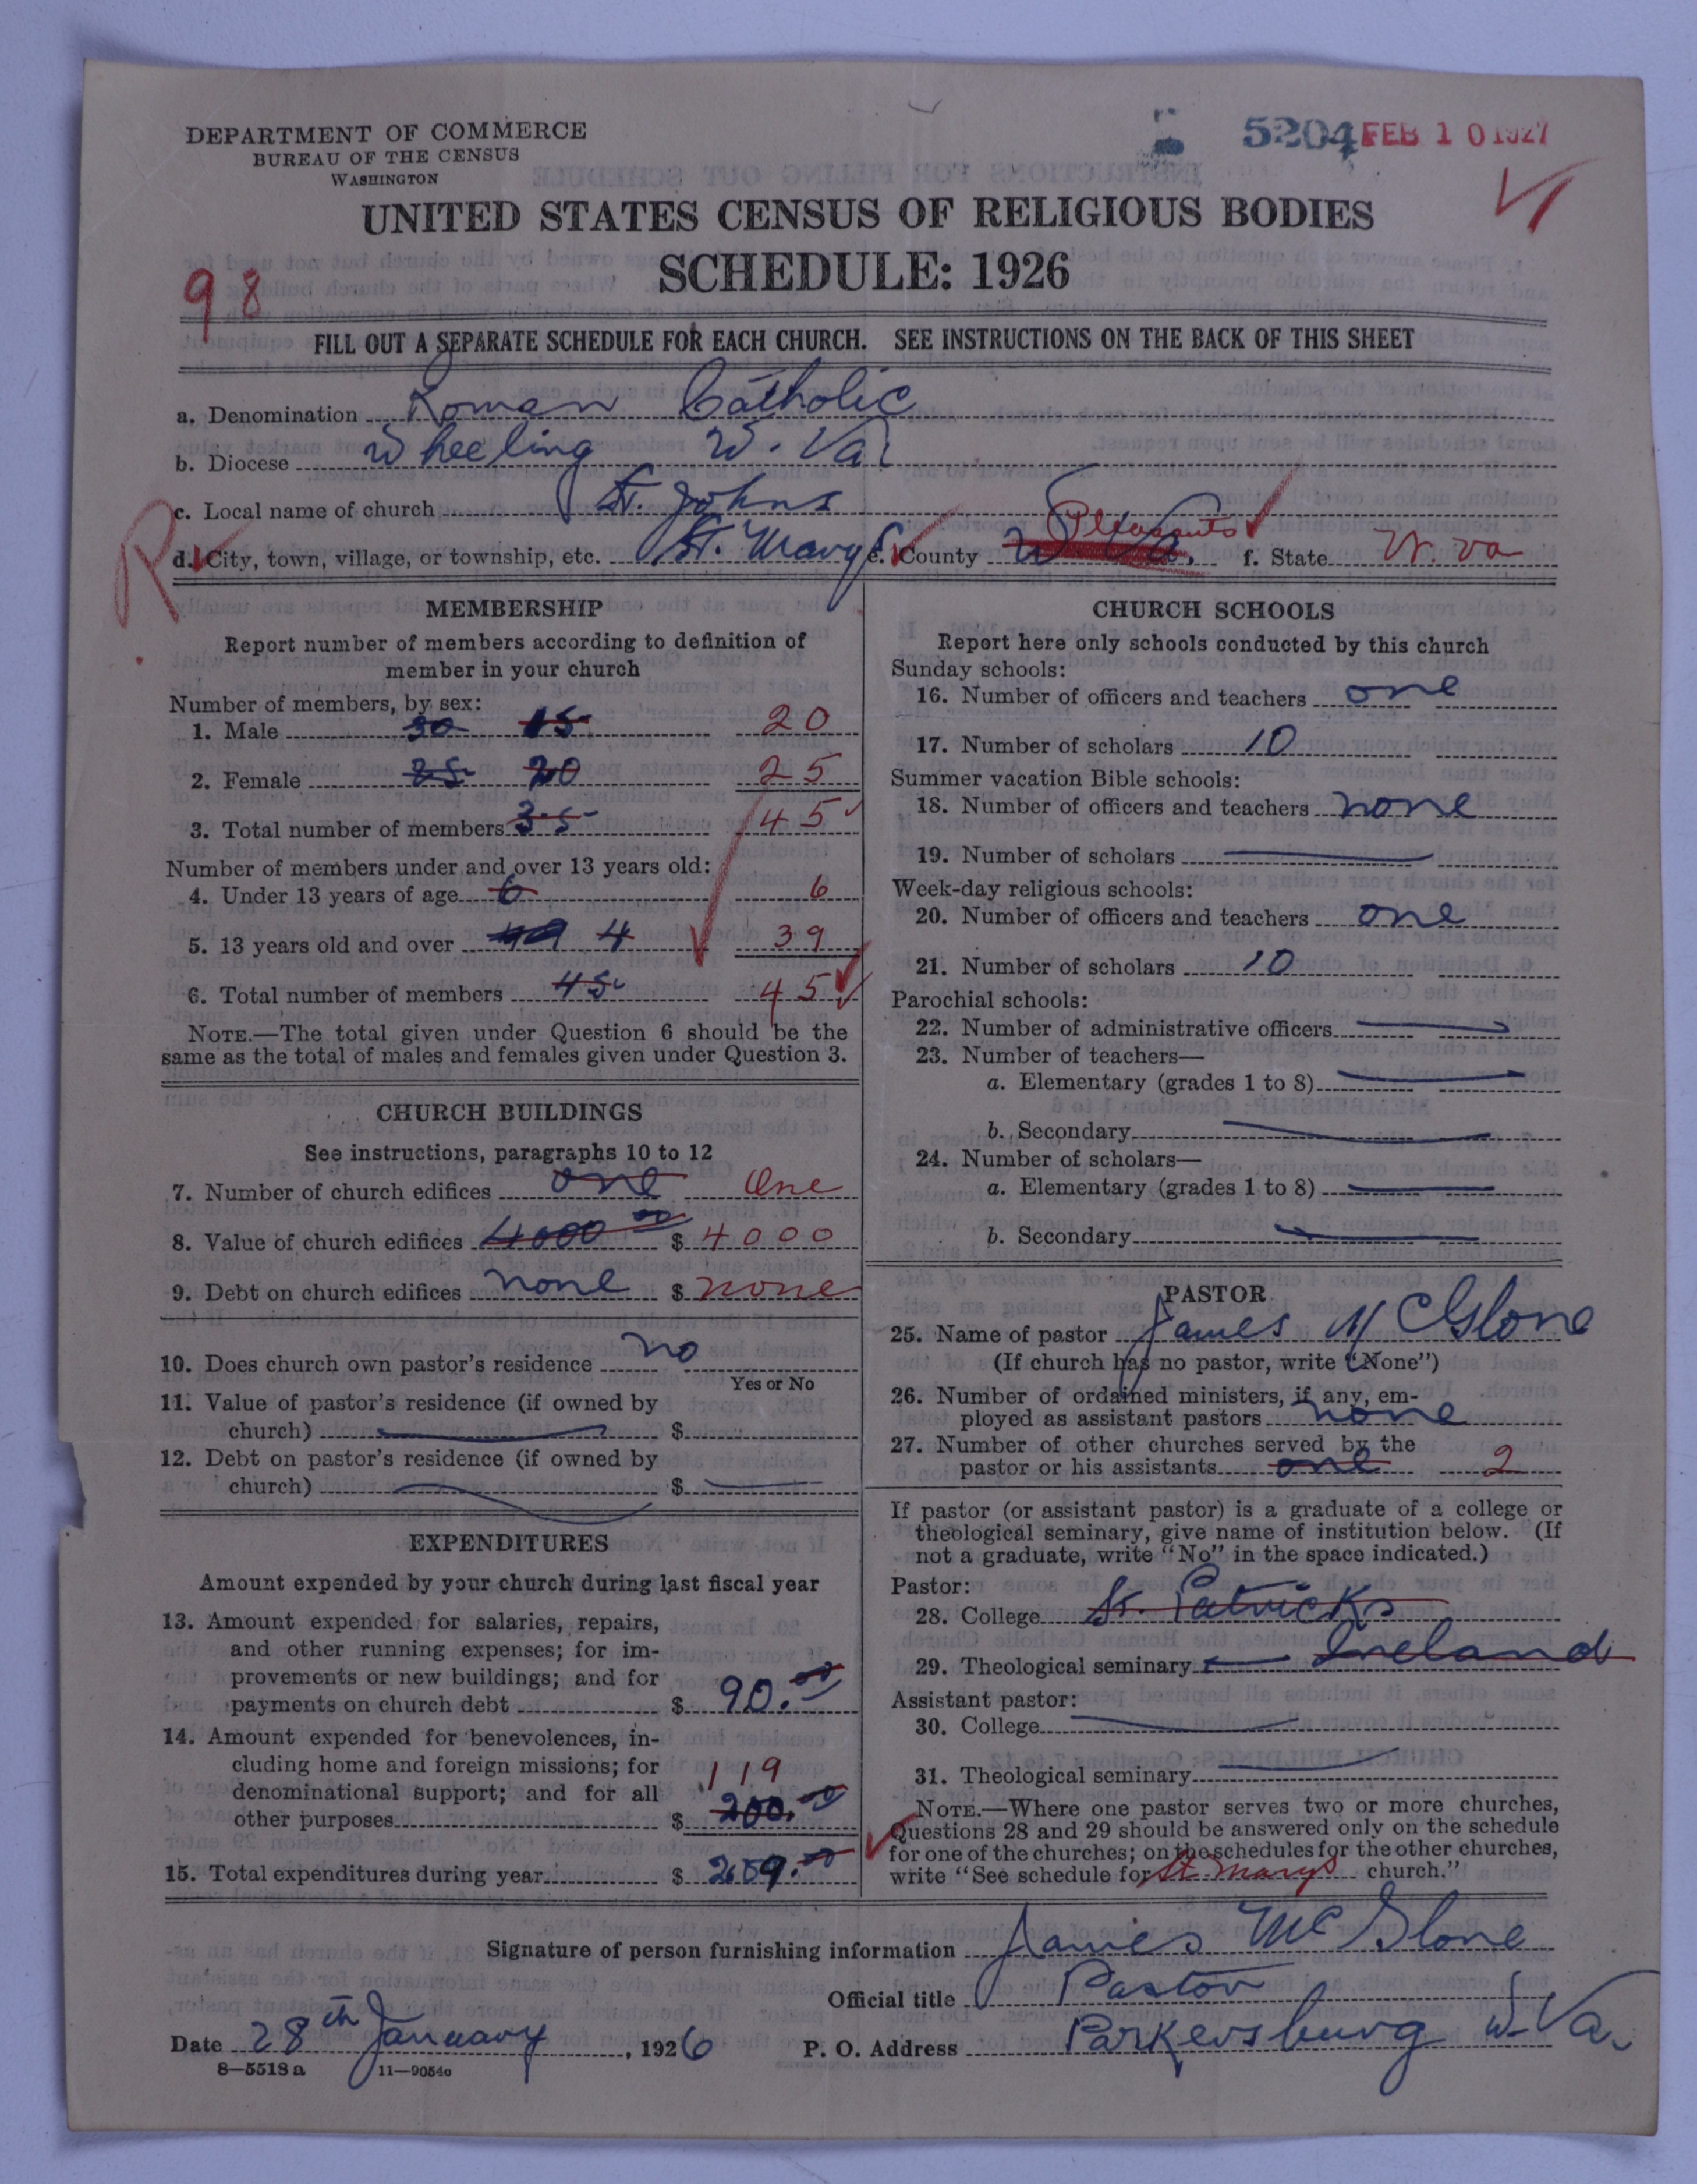 DEPARTMENT OF COMMERCE
BUREAU OF THE CENSUS
WASHINGTON
5204 FEB 10 1927
UNITED STATES CENSUS OF RELIGIOUS BODIES
SCHEDULE: 1926
98
FILL OUT A SEPARATE SCHEDULE FOR EACH CHURCH. SEE INSTRUCTIONS ON THE BACK OF THIS SHEET
a. Denomination Roman Catholic
b. Diocese Wheeling W. Va
c. Local name of church St. Johns
R
d. City, town, village, or township, etc. St. Marys e. County W. Va. Pleasants f. State W. Va
MEMBERSHIP
Report number of members according to definition of
member in your church
Number of members, by sex:
1. Male 30 15 20
2. Female 25 20 25
3. Total number of members 35 45
Number of members under and over 13 years old:
4. Under 13 years of age 6 6
5. 13 years old and over 4 39
6. Total number of members 45 45
NOTE.—The total given under Question 6 should be the
same as the total of males and females given under Question 3.
CHURCH BUILDINGS
See instructions, paragraphs 10 to 12
7. Number of church edifices one One
8. Value of church edifices 4000 00 $ 4000
9. Debt on church edifices none $ none
10. Does church own pastor's residence no
Yes or No
11. Value of pastor's residence (if owned by
church) $
12. Debt on pastor's residence (if owned by
church) $
EXPENDITURES
Amount expended by your church during last fiscal year
13. Amount expended for salaries, repairs,
and other running expenses; for im-
provements or new buildings; and for
payments on church debt $ 90.00
14. Amount expended for benevolences, in-
cluding home and foreign missions; for
denominational support; and for all
119
other purposes $ 200.00
15. Total expenditures during year $ 209.00
CHURCH SCHOOLS
Report here only schools conducted by this church
Sunday schools:
16. Number of officers and teachers one
17. Number of scholars 10
Summer vacation Bible schools:
18. Number of officers and teachers none
19. Number of scholars
Week-day religious schools:
20. Number of officers and teachers one
21. Number of scholars 10
Parochial schools:
22. Number of administrative officers
23. Number of teachers—
a. Elementary (grades 1 to 8)
b. Secondary
24. Number of scholars—
a. Elementary (grades 1 to 8)
b. Secondary
PASTOR
25. Name of pastor James McGlone
(If church has no pastor, write "None")
26. Number of ordained ministers, if any, em-
ployed as assistant pastors none
27. Number of other churches served by the
pastor or his assistants one 2
If pastor (or assistant pastor) is a graduate of a college or
theological seminary, give name of institution below. (If
not a graduate, write "No" in the space indicated.)
Pastor:
28. College St. Patricks
29. Theological seminary Ireland
Assistant pastor:
30. College
31. Theological seminary
NOTE.—Where one pastor serves two or more churches,
Questions 28 and 29 should be answered only on the schedule
for one of the churches; on the schedules for the other churches,
write "See schedule for St Marys church."
Signature of person furnishing information James McGlone
Official title Pastor
Date 28th January, 1926 P. O. Address Parkersburg W. Va.
8—5518 a 11—9054o